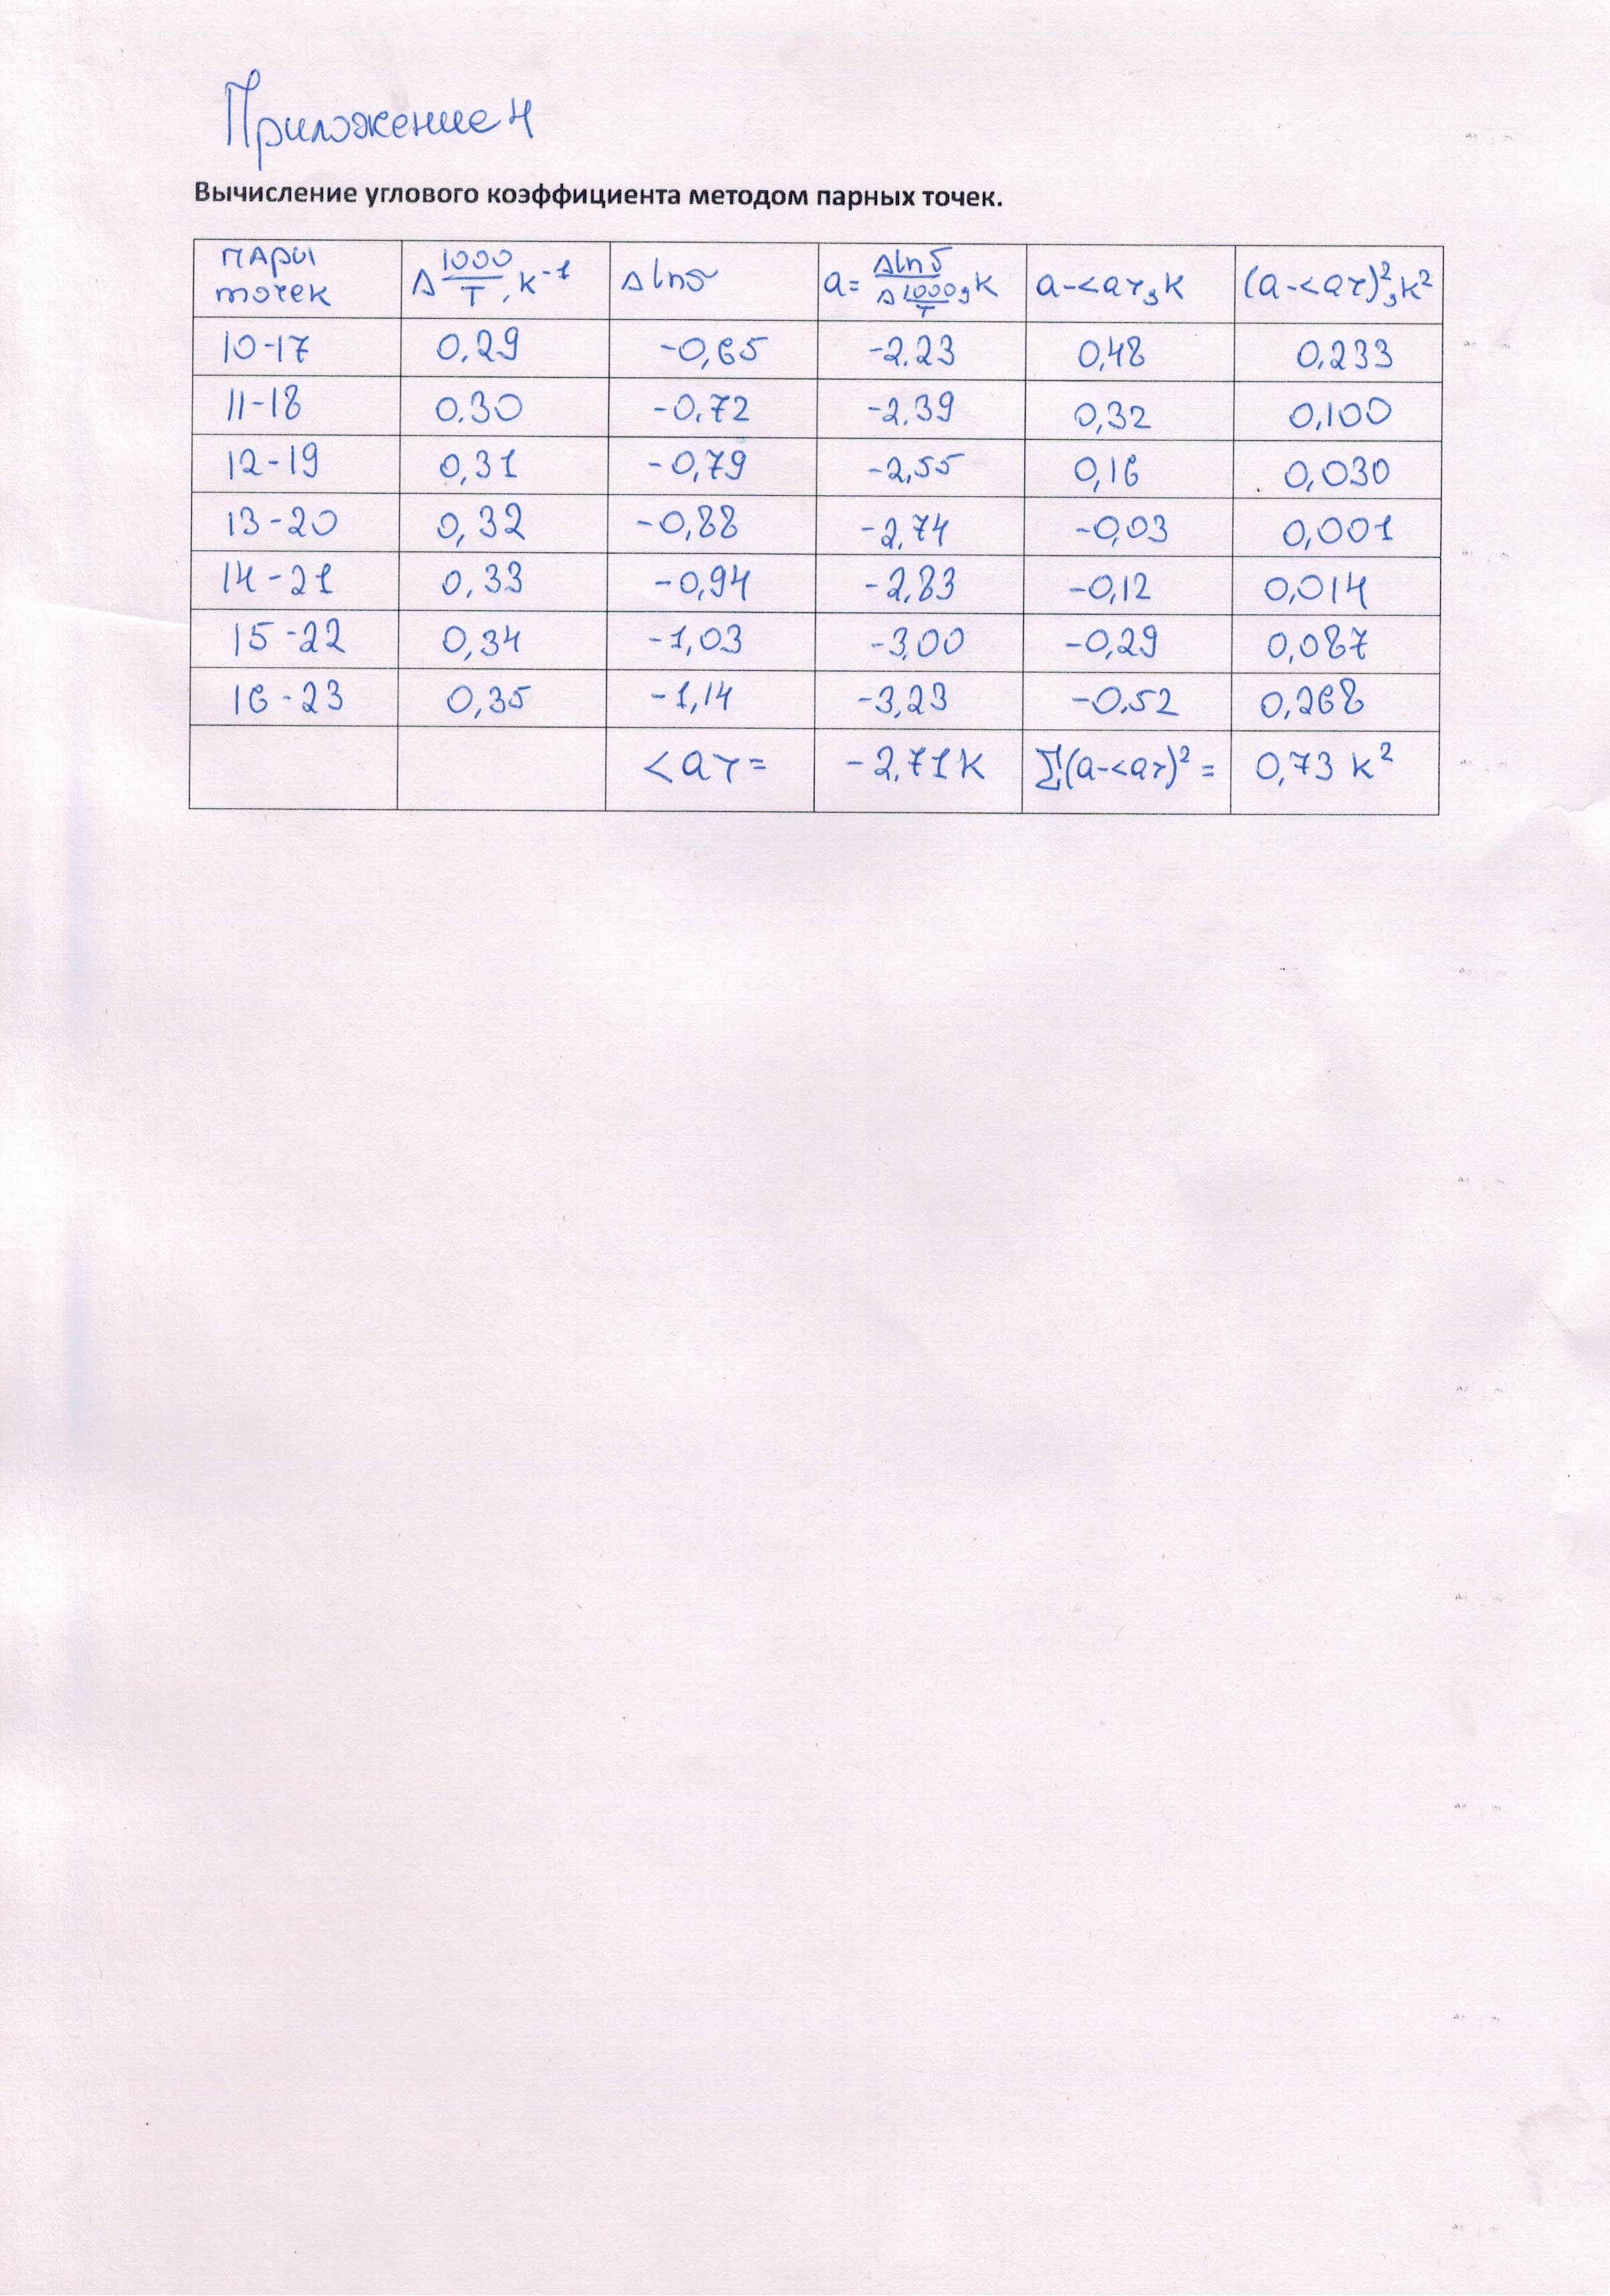 Приложение 4
Вычисление углового коэффициента методом парных точек.
пары точек | Δ 1000/T, К⁻¹ | Δ lnσ | a = Δlnσ / Δ 1000/T, К | a-<a>, К | (a-<a>)², К²
10-17 | 0.29 | -0,65 | -2.23 | 0,48 | 0.233
11-18 | 0.30 | -0,72 | -2.39 | 0,32 | 0,100
12-19 | 0,31 | -0,79 | -2,55 | 0,16 | 0,030
13-20 | 0,32 | -0,88 | -2,74 | -0,03 | 0,001
14-21 | 0,33 | -0,94 | -2,83 | -0,12 | 0,014
15-22 | 0,34 | -1,03 | -3,00 | -0,29 | 0,087
16-23 | 0,35 | -1,14 | -3,23 | -0.52 | 0,268
<a> = | -2,71 К | Σ(a-<a>)² = | 0,73 К²